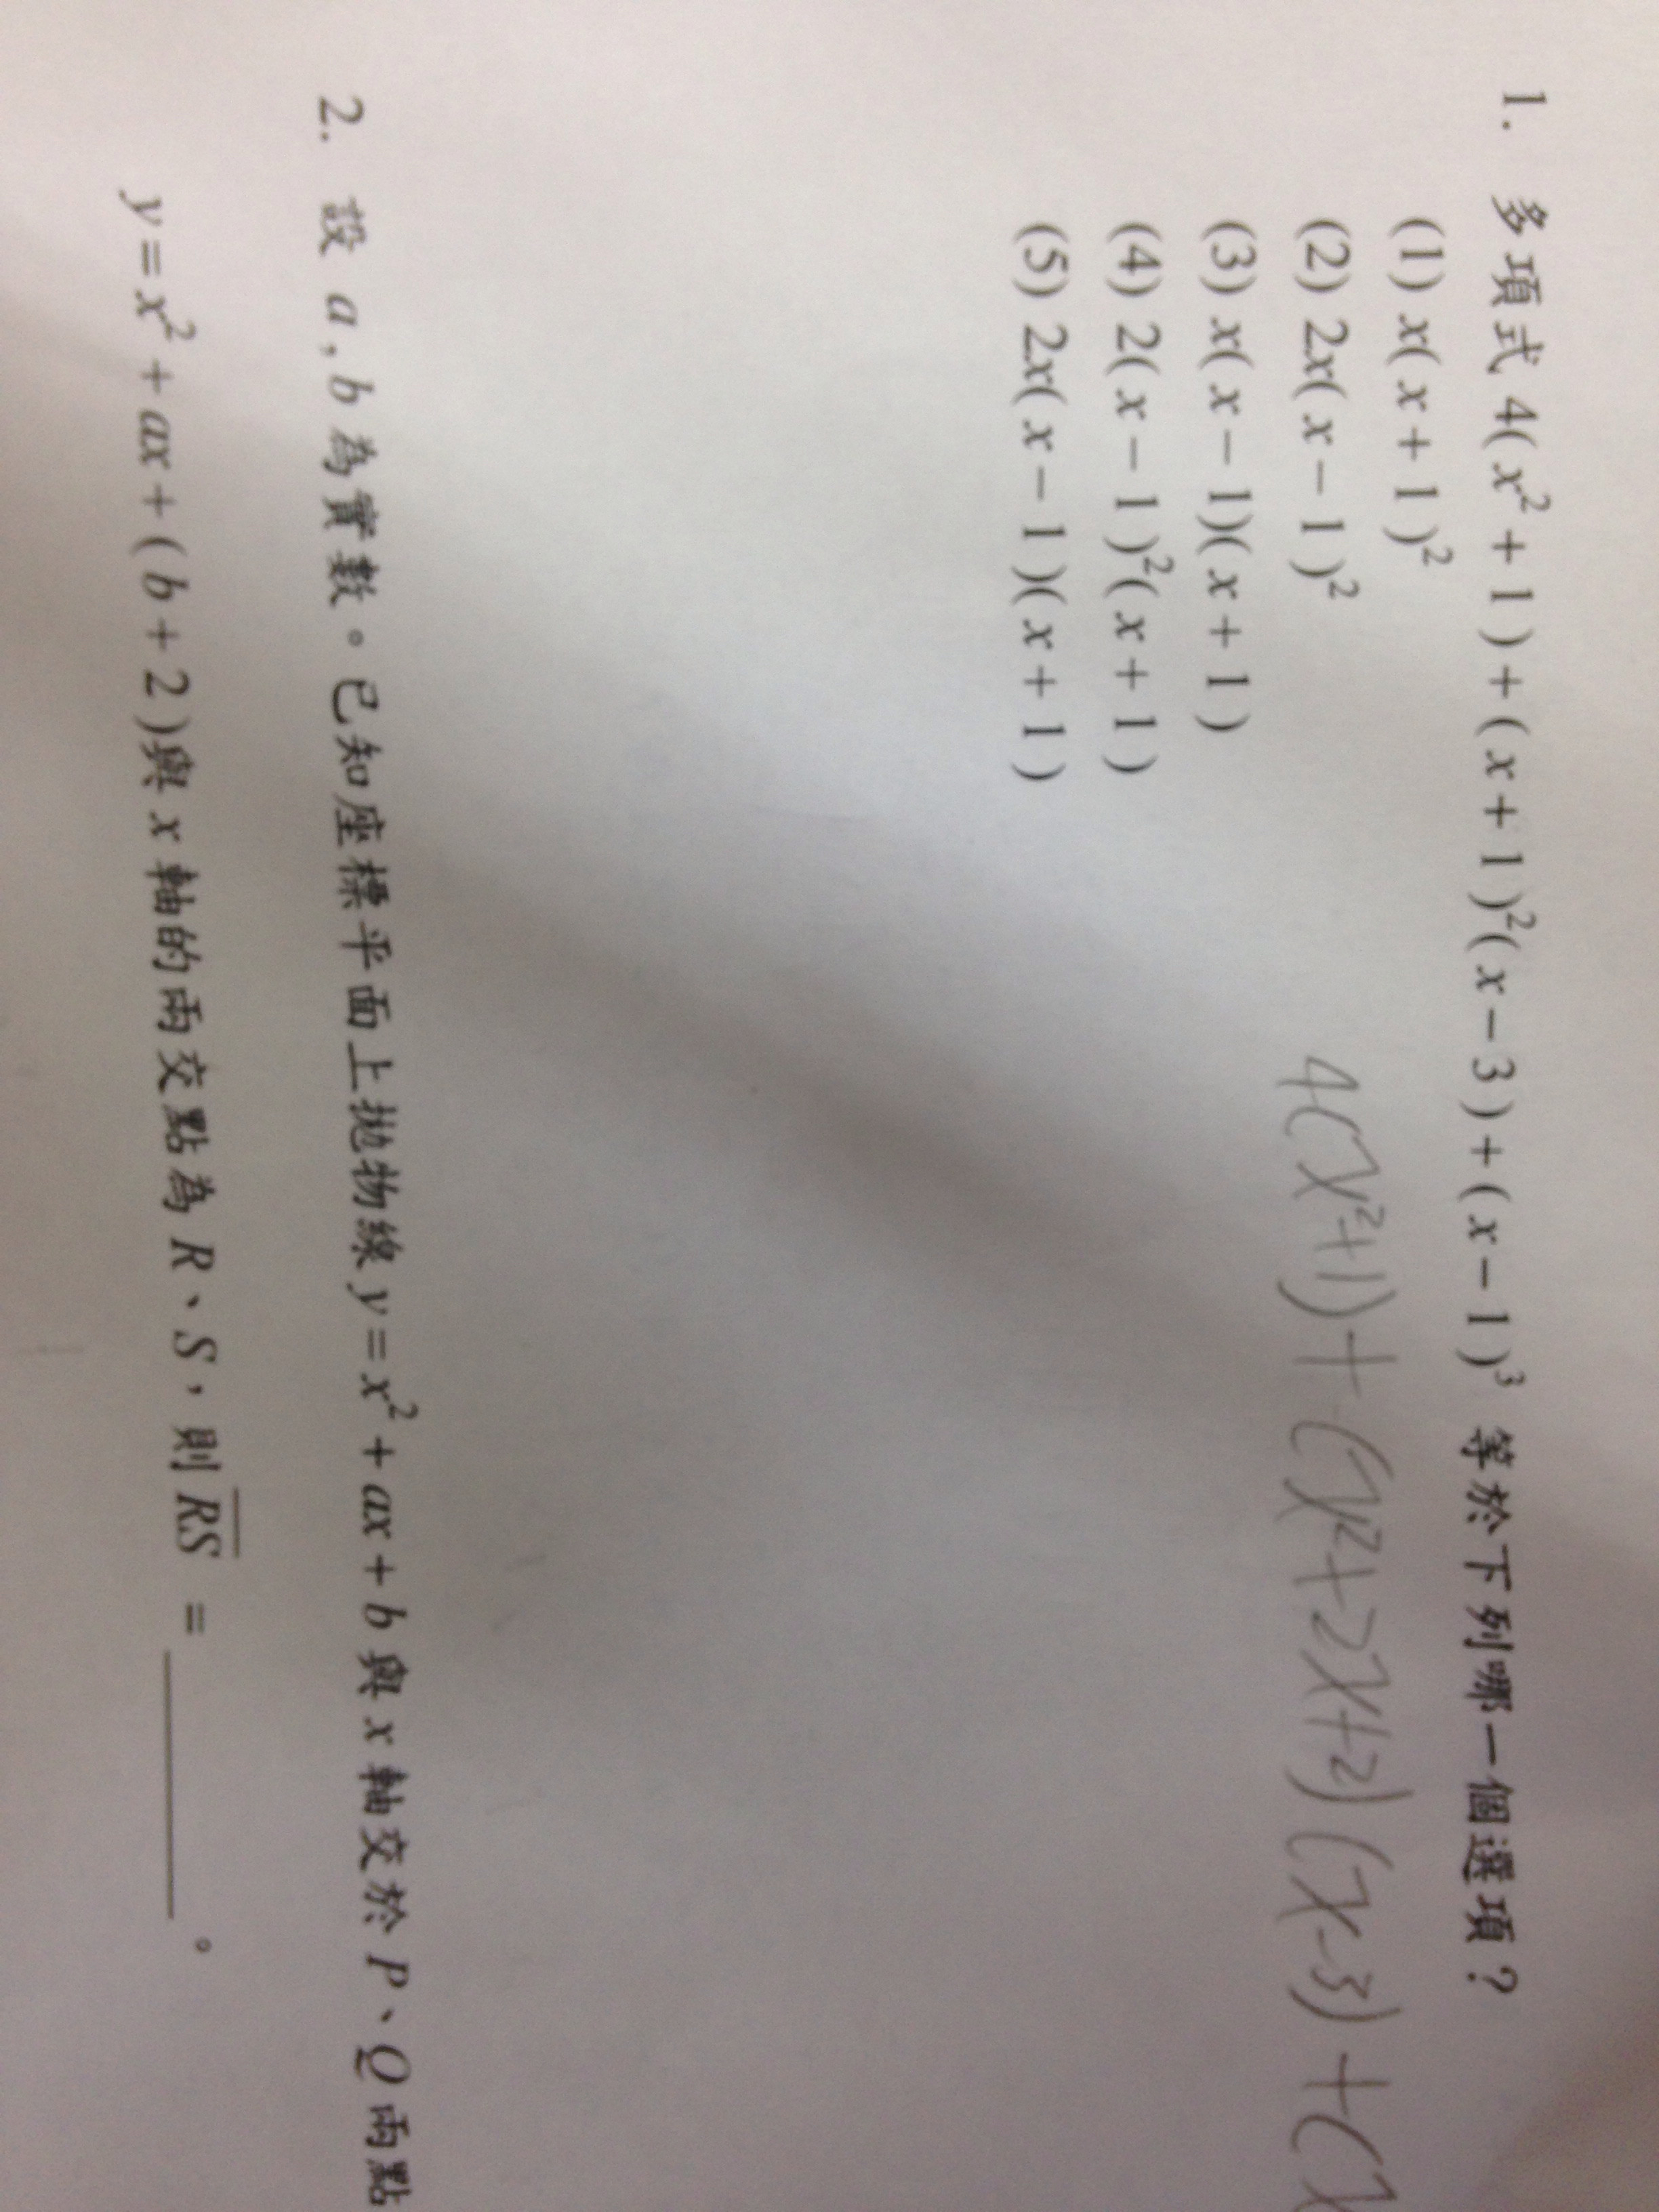 1. 多項式 4( x² + 1 ) + ( x + 1 )²( x − 3 ) + ( x − 1 )³ 等於下列哪一個選項？
(1) x( x + 1 )²
(2) 2x( x − 1 )²
(3) x( x − 1)( x + 1 )
(4) 2( x − 1 )²( x + 1 )
(5) 2x( x − 1 )( x + 1 )
4(x²+1)+(x²+2x+2)(x-3)+(x
2. 設 a , b 為實數。已知座標平面上拋物線 y = x² + ax + b 與 x 軸交於 P、Q 兩點
y = x² + ax + ( b + 2 )與 x 軸的兩交點為 R、S，則 R̅S̅ = ______。